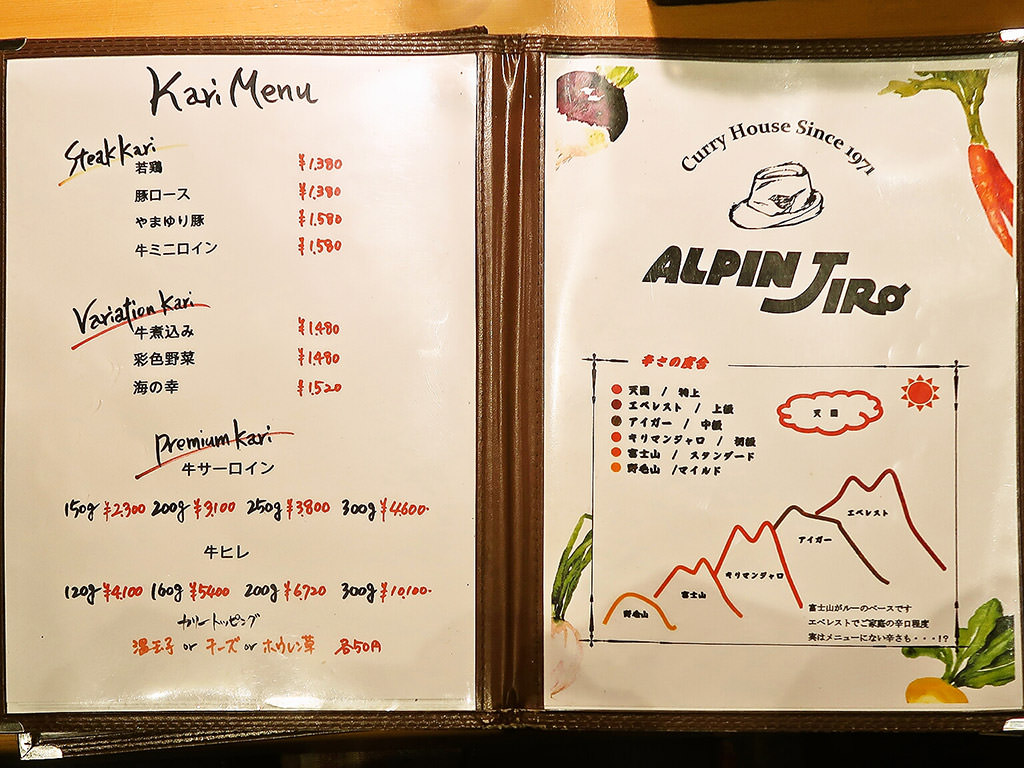 Kari Menu
Steak Kari
若鶏 ¥1,380
豚ロース ¥1,380
やまゆり豚 ¥1,580
牛ミニロイン ¥1,580
Variation Kari
牛煮込み ¥1,480
彩色野菜 ¥1,480
海の幸 ¥1,520
Premium Kari
牛サーロイン
150g ¥2,300 200g ¥3,100 250g ¥3,800 300g ¥4,600-
牛ヒレ
120g ¥4,100 160g ¥5400 200g ¥6,720 300g ¥10,100-
カリートッピング
温玉子 or チーズ or ホウレン草 各50円
Curry House Since 1971
ALPIN JIRO
辛さの度合
天国 / 特上
エベレスト / 上級
アイガー / 中級
キリマンジャロ / 初級
富士山 / スタンダード
野毛山 /マイルド
天国
エベレスト
アイガー
キリマンジャロ
富士山
野毛山
富士山がルーのベースです
エベレストでご家庭の辛口程度
実はメニューにない辛さも・・・!?